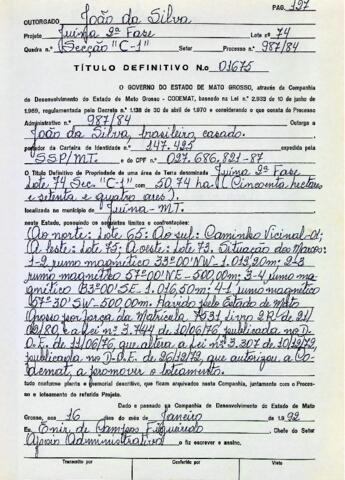 PAG. 127
OUTORGADO João da Silva
Projeto Juína 2ª Fase Lote nº 74
Quadra n.º (Secção "C-1") Setor Processo n.º 987/84
TÍTULO DEFINITIVO N.o 01675
O GOVERNO DO ESTADO DE MATO GROSSO, através da Companhia
de Desenvolvimento do Estado de Mato Grosso - CODEMAT, baseado na Lei n.º 2.933 de 10 de junho de
1969, regulamentada pelo Decreto n.º 1.138 de 30 de abril de 1970 e considerando o que consta do Processo
Administrativo n.º 987/84 Outorga a
João da Silva, brasileiro, casado.
portador da Carteira de Identidade n.º 147.425 expedida pela
SSP/MT. e do CPF n.º 027.686.821-87
O Título Definitivo de Propriedade de uma área de Terra denominada Juína 2ª Fase
Lote 74 Sec. "C-1" com 50,74 ha. (Cinquenta hectares
e setenta e quatro ares).
localizada no município de Juína - MT.
neste Estado, possuindo os seguintes limites e confrontações:
(Ao norte: Lote 65; Ao sul: Caminho Vicinal-01;
A leste: Lote 75; A oeste: Lote 73. Situação dos Marcos:
1-2 rumo magnético 33º00'NW - 1.013,20m; 2-3
rumo magnético 57º00'NE - 500,00m; 3-4 rumo ma-
gnético 33º00'SE - 1.016,50m; 4-1 rumo magnético
57º30'SW - 500,00m. Havido pelo Estado de Mato
Grosso por força da Matrícula 7531 livro 2R de 21/
02/80 e a Lei nº 3.744 de 10/06/76 publicada no D-
O.E. de 11/06/76 que altera a lei nº 3.307 de 10/12/72
publicada no D.O.E. de 26/12/72, que autorizou a Co-
demat, a promover o loteamento.
tudo conforme planta e memorial descritivo, que ficam arquivados nesta Companhia, juntamente com o Proces-
so e loteamento do referido Projeto.
Dado e passado na Companhia de Desenvolvimento do Estado de Mato
Grosso, aos 16 dias do mês de Janeiro de 1.992
Eu, Enir de Campos Figueiredo Chefe do Setor
Apoio Administrativo o fiz escrever e assino.
Transcrito por Conferido por Visto